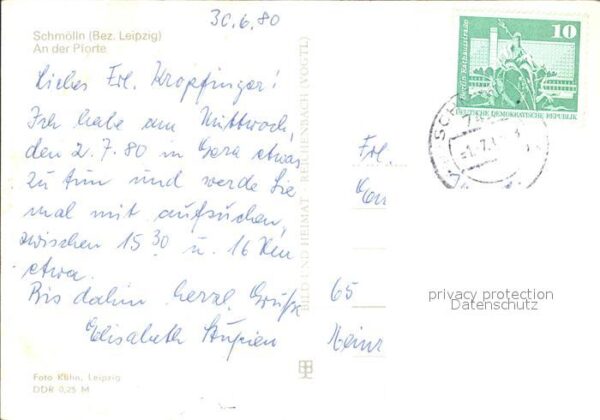 30.6.80
Schmölln (Bez. Leipzig)
An der Pforte
Liebes Frl. Kropfinger!
Ich habe am Mittwoch,
den 2.7.80 in Gera etwas
zu tun und werde Sie
mal mit aufsuchen,
zwischen 15 30 u. 16 Uhr
etwa.
Bis dahin herzl. Grüße
Elisabeth
Foto Kühn, Leipzig
DDR 0,25 M
BILD UND HEIMAT · REICHENBACH (VOGTL)
10
Berlin Rathausstraße
DEUTSCHE DEMOKRATISCHE REPUBLIK
SCH
Frl.
65
Heinr
privacy protection
Datenschutz